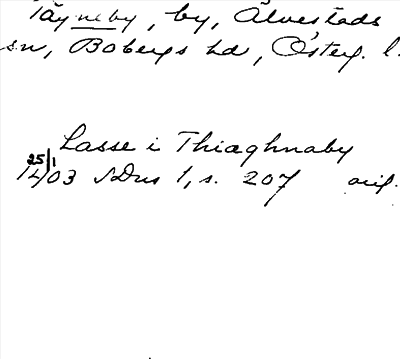 Täyneby, by, Älvestads
sn, Bobergs hd, Österg. l.
Lasse i Thiæghnaby
25/1 1403 SDns 1, s. 207 orig.